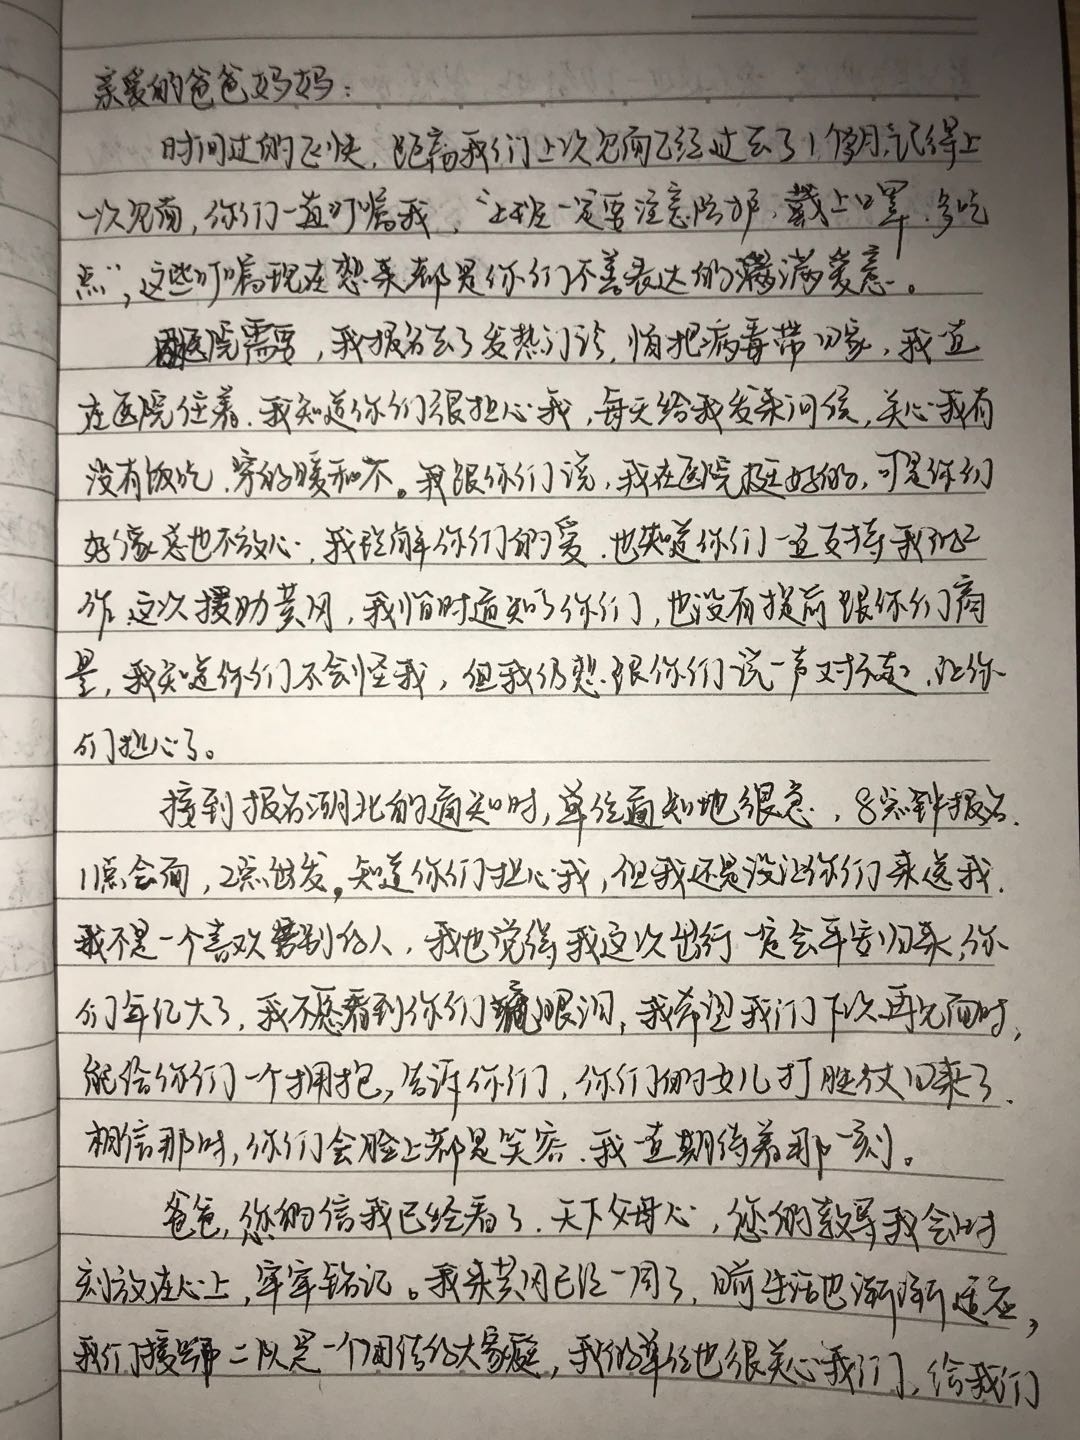 亲爱的爸爸妈妈：
时间过的飞快，距离我们上次见面已经过去了1个月，记得上
一次见面，你们一直叮嘱我，“上班一定要注意防护，戴上口罩，多吃
点”，这些叮嘱现在想来都是你们不善表达的满满爱意。
因医院需要，我报名去了发热门诊，怕把病毒带回家，我一直
在医院住着，我知道你们很担心我，每天给我发来问侯，关心我有
没有饭吃，穿的暖和不。我跟你们说，我在医院挺好的，可是你们
好像总也不放心，我能理解你们的爱，也知道你们一直支持我的工
作，这次援助黄冈，我临时通知了你们，也没有提前跟你们商
量，我知道你们不会怪我，但我仍想跟你们说一声对不起，让你
们担心了。
接到报名湖北的通知时，单位通知地很急，8点钟报名，
11点会面，2点出发。知道你们担心我，但我还是没让你们来送我，
我不是一个喜欢离别的人，我也觉得我这次出行一定会平安归来，你
们年纪大了，我不愿看到你们流眼泪，我希望我们下次再见面时，
能给你们一个拥抱，告诉你们，你们的女儿打胜仗回来了，
相信那时，你们会脸上都是笑容，我一直期待着那一刻。
爸爸，您的信我已经看了，天下父母心，您的教导我会时
刻放在心上，牢牢铭记。我来黄冈已经一周了，目前生活也渐渐适应，
我们援鄂二队是一个团结的大家庭，我的单位也很关心我们，给我们